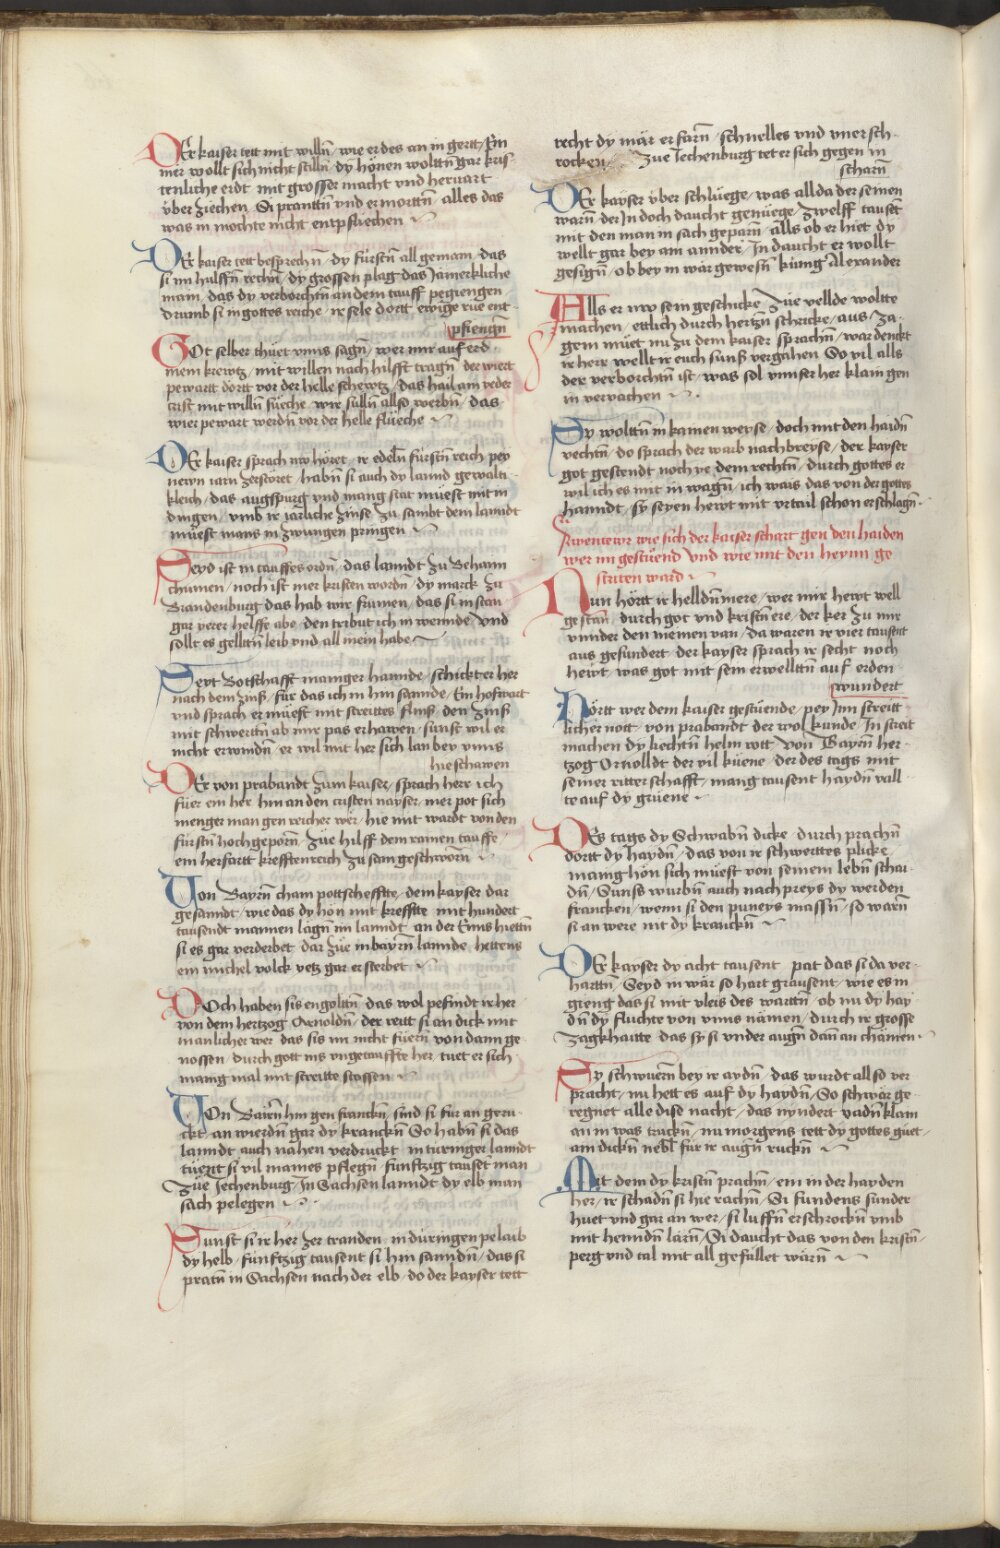 DEr kaiser tett mit willn̄ / wie er des an in gertt / Im
mer wollt sich nicht stilln̄ / dy hönen woltn̄ gar kris
tenliche erdt mit grosser macht vnd heruart
v̈ber ziechen Si prantn̄ vnd ermortn̄ alles das
was in mochte nicht entpfliechen
DEr kaiser tett besprechn̄ / dy fürstn̄ all gemain / das
si im hulffn̄ rechn̄ / dy grossen plag das Jamerkliche
main / das dy verborchtn̄ an dem tauff pegiengen
drumb si in gottes reiche / ir sele dortt ewige rue ent
pfiengn̄
GOt selber thüet vnns sagn̄ / wer mir auf erd
mein krewtz / mit willen nach hilfft tragn̄ der wiert
pewartt dortt vor der helle schewtz / das hail ain yeder
crist mit willn̄ süeche / wir sulln̄ allso werbn̄ / das
wier pewart werdn̄ vor der helle flüeche
DEr kaiser sprach nw höret / ir edeln̄ fürstn̄ reich / pey
newn iarn zerstöret / habn̄ si auch dy lannd gewalti
kleich / das augspurg vnd mang stat müest mit in
dingen / vmb ir iarliche zinse zu sambt dem lanndt
müest mans in zwungen pringen
Seyd ist in tauffes ordn̄ / das lanndt zu Behaim
chumen / noch ist mer kristen wordn̄ / dy marck zu
Brandenburg das hab wir frumen / das si in stetn
gar yerer helffe abe / den tribut ich in wennde vnd
sollt es gelltn̄ leib vnd all mein habe
Seyt Botschafft maniger hannde / schickt er her
nach dem zinß / für das ich in hin sannde / Ein hofwart
vnd sprach er müest mit streittes flinß / den zinß
mit schwerttn̄ ab mir pas erhawen / sunst wil er
nicht erwindn̄ / er wil mit her sich lan bey vnns
hie schawen
DEr von prabandt zum kaiser / sprach herr ich
füer ein her / hin an den cristen nayser / mer pot sich
menger man gen reicher wer / hie mit wardt von den
fürstn̄ hochgeporn̄ / Züe hilff dem rainen tauffe /
ein herfartt krefftenreich zu sam geschworn
Von Bayrn̄ cham pottschefftte / dem kayser dar
gesanndt / wie das dy hön mit krefftte mit hundert
tausendt mannen lagn̄ im lanndt / an der Enns hiettn̄
si es gar verderbet / dar züe in bayrn̄ lannde / hettens
ein michel volck yetz gar ersterbet
DOch haben sis engoltn̄ / das wol pefindt ir her
von dem hertzog Arnoldn̄ / der reitt si an dick mit
manlicher wer / das sis im nicht füern̄ von dann ge
nossen / durch gott ins vngetauffte her / tuet er sich
mang mal mit streitte stossen
VOn Bairn̄ hin gen franckn̄ / sind si für an geru
ckt / an wierdn̄ gar dy kranckn̄ / So habn̄ si das
lanndt auch nahen verdruckt / in türinger lanndt
tüent si vil mames pflegn̄ / funftzig tauset man
Züe Jechenburg / In Sachsen lanndt dy elb man
sach pelegen
Sunst si ir her zer tranden / in düringen pelaib
dy helb / fünftzig tausent si hin sanndn̄ / das si
pratn̄ in Sachsen nach der elb / do der kayser tett
recht dy mär erfarn̄ / schnelles vnd vnersch
rocken / Züe Jechenburg tet er sich gegen in
scharn̄
DEr kayser v̈ber schlüege / was all da der seinen
warn̄ / der In doch daucht genüege / zwelff tausēt
mit den man in sach geparn̄ / alls ob er hiet dy
wellt gar bey ain annder / In daucht er wollt
gesign̄ / ob bey in wär gewesn̄ künig Alexander
Alls er nw sein geschicke / Züe vellde wollte
machen / ettlich durch hertzn̄ schricke / aus za
gem müet nu zu dem kaiser sprachn̄ / war denckt
ir herr wellt ir euch sunß vergahen / So vil alls
der verborchtn̄ ist / was sol vnnser her klain gen
in vervachen
Sy wolttn̄ in kainen weyse / doch mit den haidn̄
vechtn̄ / do sprach der warb nach breyse / der kayser
got gestendt noch ye dem rechtn̄ / durch gottes er
wil ich es mit in wagn̄ / ich wais das von der gottes
hanndt / sy seyen hewt mit vrtail schon erschlagn̄
Awentewr wie sich der kaiser schart gen den haiden
wer im gestüend vnd wie mit den heynn ge
striten ward
Nun hörtt ir helldn̄ mere / wer mir hewt well
gestan̄ / durch got vnd kristn̄ ere / der ker zu mir
vnnder den meinen van / da waren ir vier tausent
aus gesundert / der kayser sprach ir secht noch
hewt / was got mit sein erwelltn̄ auf erden
wundert
Hörtt wer dem kaiser gestüende / pey Im streitt
licher nott / von prabandt der wol kunde / In streit
machen dy liechtn̄ helm rott / von Bayrn̄ her
tzog Arnolldt der vil küene / der des tags mit
seiner ritterschafft / mang tausent haydn̄ vall
te auf dy grüene
DEs tags dy Schwabn̄ dicke / durch prachn̄
dortt dy haydn̄ / das von ir schwerttes plicke /
manig hön sich müest von seinem lebn̄ schai
dn̄ / Sunß wurbn̄ auch nach preys dy werden
francken / wenn si den puneys massn̄ / so warn̄
si an were nit dy kranckn̄
DEr kayser dy acht tausent / pat das si da ver
harttn̄ / Seyd in wär so hart grausent / wie es in
gieng das si mit vleis des warttn̄ / ob nu dy hay
dn̄ dy fluchte von vnns nämen / durch ir grosse
zaghaitte / das sy si vnder augn̄ dan̄ an chämen
Sy schwuern bey ir aydn̄ / das wurdt allso ver
pracht / nu hett es auf dy haydn̄ / So schwär ge
regnet alle dise nacht / das nyndert vadn̄ klain
an in was truckn̄ / nu morgens tett dy gottes güet
ain dickn̄ nebl für ir augn̄ ruckn̄
Mit dem dy kristn̄ prachn̄ / ein in der hayden
her / ir schadn̄ si hie rachn̄ / Si fundens sunder
huet vnd gar an wer / si luffn̄ erschrockn̄ vmb
mit henndn̄ lärn̄ / Si daucht das von den kristn̄
perg vnd tal mit all gefüllet wärn̄